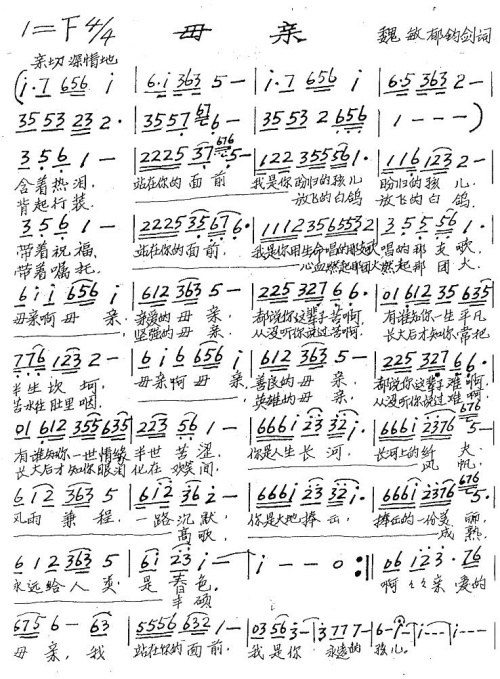 1=下4/4 母亲 魏敏 郁钧剑词
亲切深情地
(i·7 656 i | 6·i 363 5— | i·7 656 i | 6·5 363 2—
35 53 23 2· | 3557 676— | 3553 2 656 | 1———)
3 5·6 1— | 2225 37 6765— | 122 355561· | 116 123 2—
含着热泪, 站在你的面前 我是你盼归的孩儿 盼归的孩儿.
背起行装. 放飞的白鸽 放飞的白鸽.
3 5 6 1— | 2225 35676· | 1112 356553 2 | 3 5·5 56 1·
带着祝福, 站在你的面前, 我是你用生命唱的 唱的那支歌,
带着嘱托. 心血燃起 燃起那团火.
6 i i 656 i | 612 363 5— | 225 327 6 6· | 01 612 35 635
母亲啊母亲, 亲爱的母亲, 都说你这辈子苦啊, 有谁知你一生平凡
坚强的母亲, 从没听你说过苦啊. 长大后才知你,常把
776 123 2— | 6 i 6 656 i | 612 363 5— | 225 327 6 6·
半生坎坷. 母亲啊母亲, 善良的母亲, 都说你这辈子难啊,
苦水往肚里咽. 英雄的母亲, 从没听你说过难啊.
01 612 355635 | 223 56 1— | 666i 23 32i· | 666i 2376 5—
有谁知你一世情缘 半世苦涩. 你是人生长河, 长河上的纤夫
长大后才知你眼泪 化在欢笑间. 风帆,
6 1 2 363 5 | 6i2 36 2— | 666i 23 32i· | 666i 2376 5·
风雨兼程, 一路沉默, 你是大地捧出, 捧出的一份美丽
高歌, 成熟.
6 1 2 363 5 | 6i 23 i— | i——0 :‖ 06 i23·76
永远给人类是春色. 啊 亲爱的
丰硕
675 6— 63 | 5556 632 1— | 03 563— | 3 777— | 6— i— | i——— | i———
母亲, 我 站在你的面前, 我是你 永远的 孩儿.